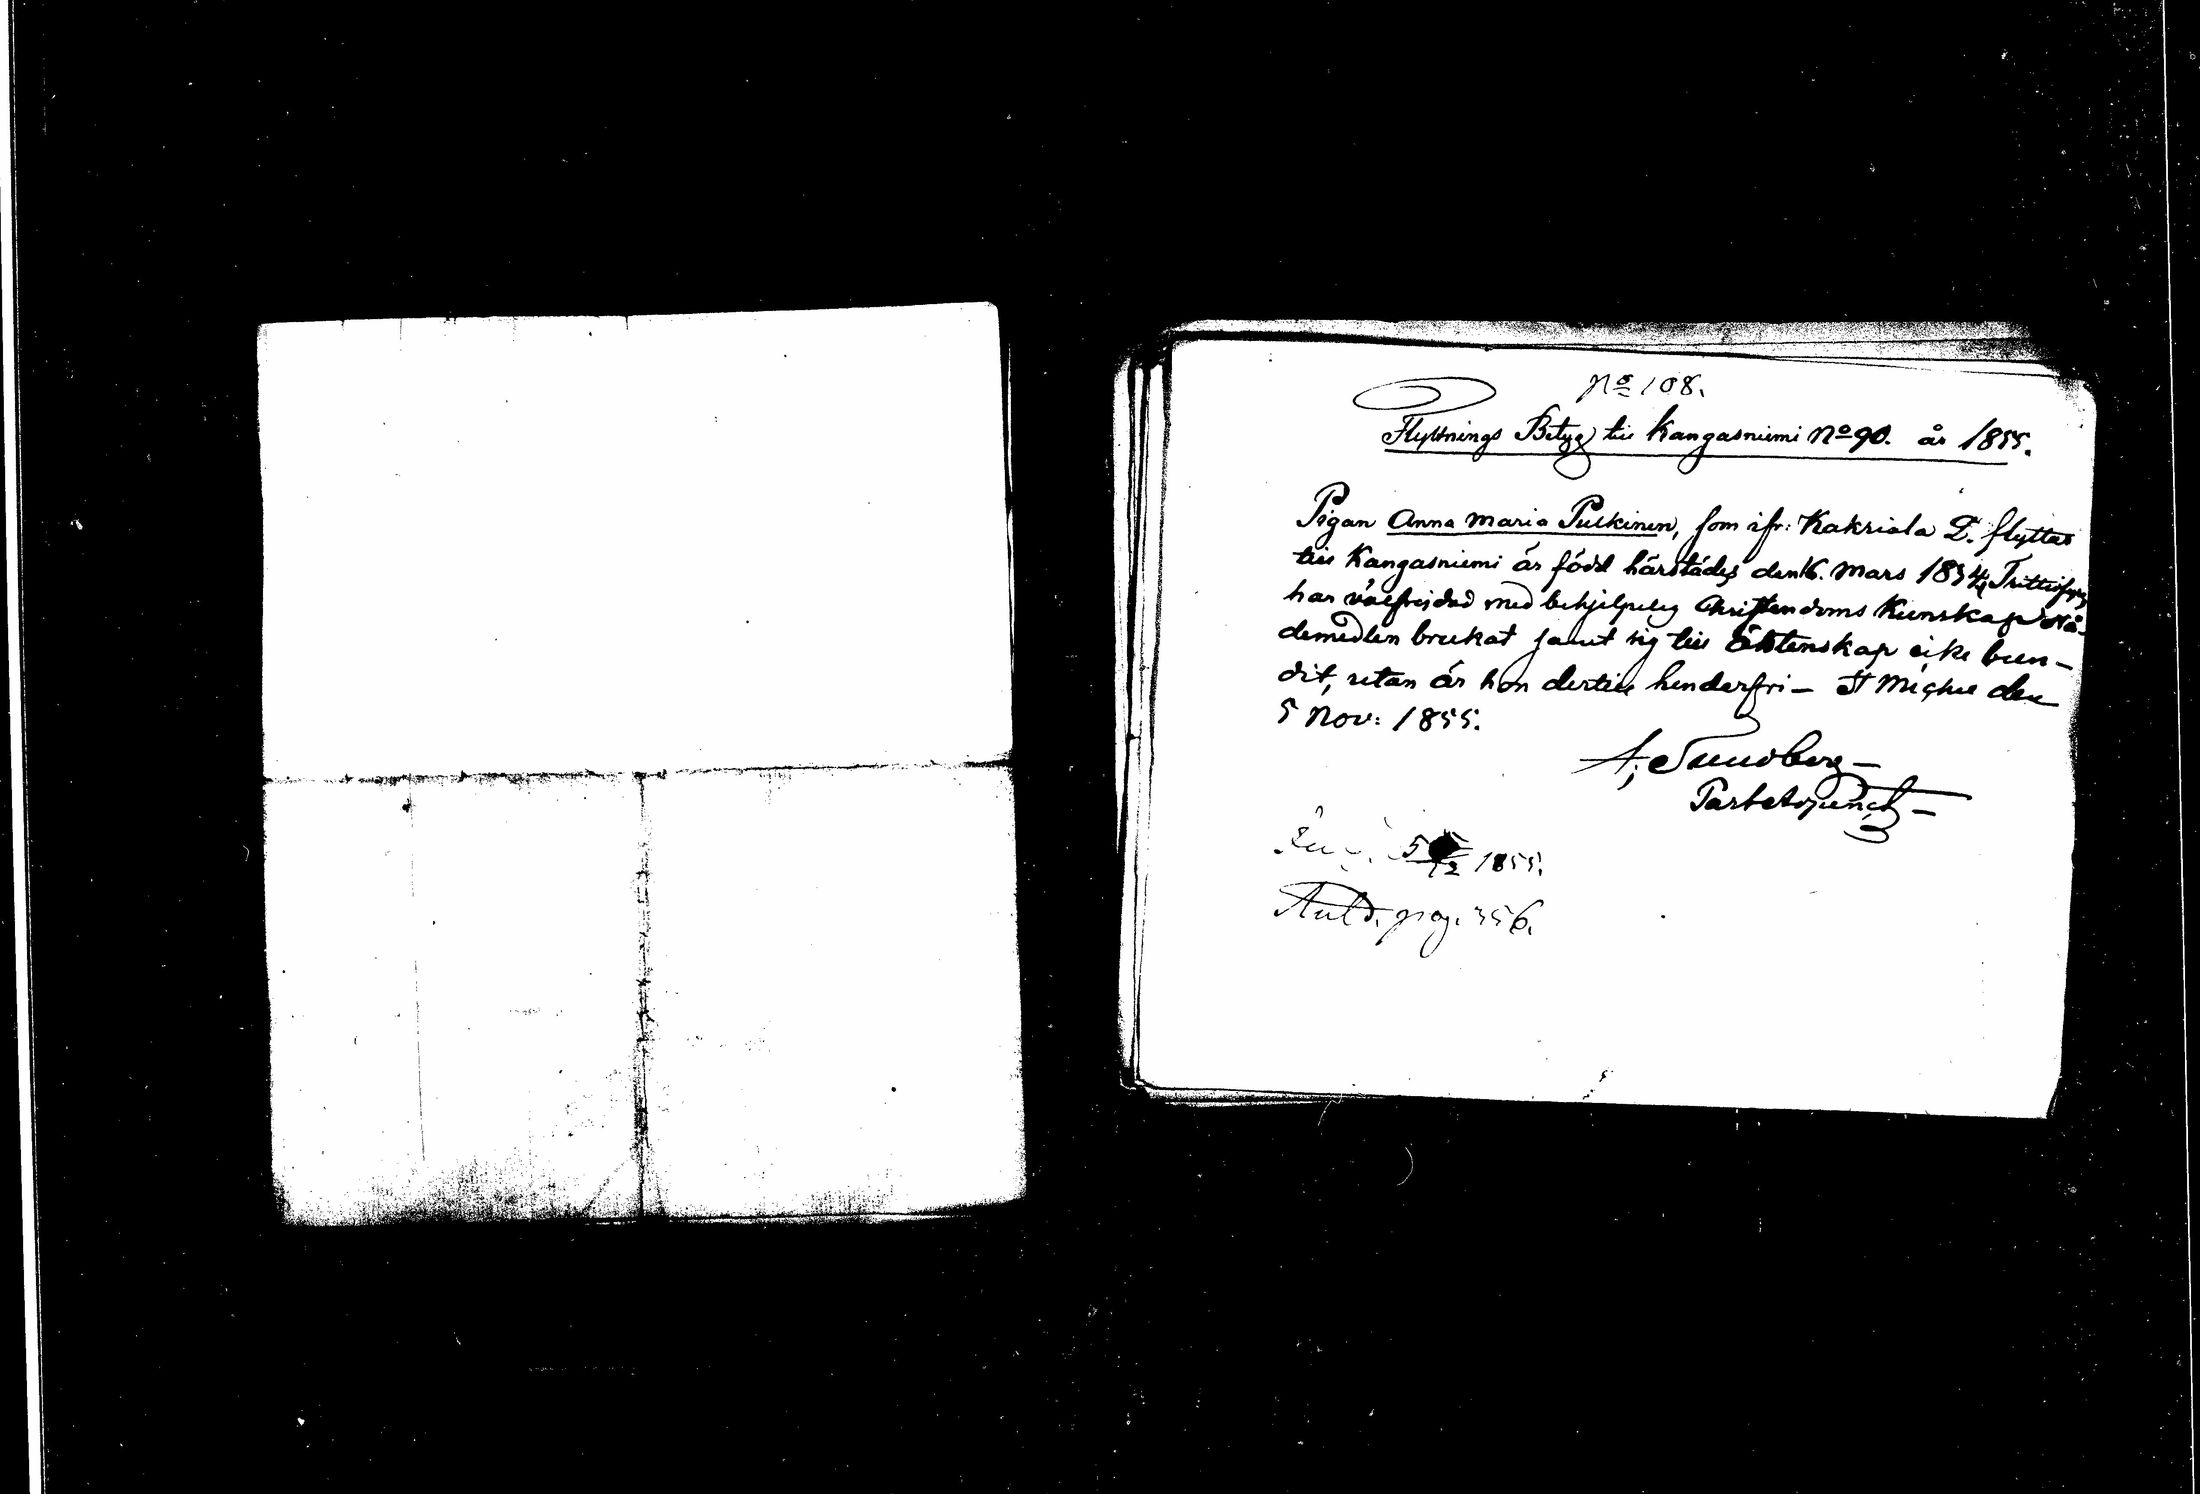 No 108.
Flyttnings Betyg till Kangasniemi No 90. år 1855.
Pigan Anna Maria Pulkinen, som ifr: Kakriala D. flyttar
till Kangasniemi är född härstädes den 16. Mars 1834, Trettiofyra
har välfrejdad med behjelpelig Christendoms Kunskap Nå-
demedlen brukat samt sig till Äktenskap icke bun-
dit, utan är hon dertill henderfri — St Michel den
5 Nov: 1855.
A; Sundberg —
5/12 1855.
pag. 356.